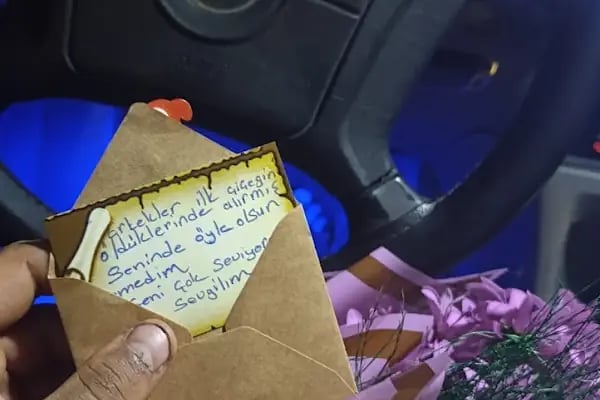 Erkekler ilk çiçeğin
öldüklerinde alırmış
Seninde öyle olsun
medim
Seni Çok Seviyor
Sevgilim